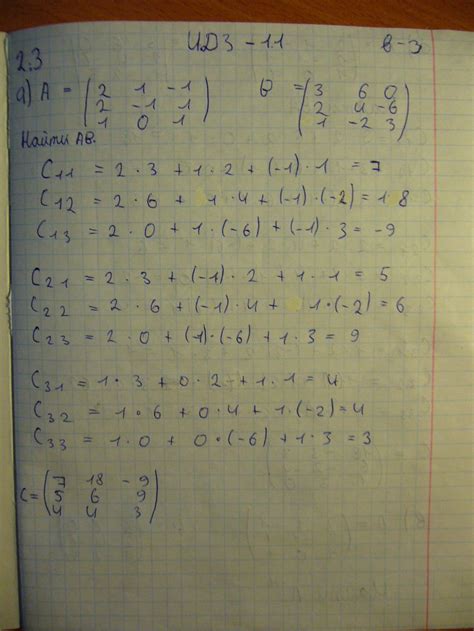 ИДЗ-11 в-3
2.3
а) A = (2 1 -1 B = (3 6 0
2 -1 1 2 4 -6
1 0 1) 1 -2 3)
Найти AB.
C11 = 2·3 + 1·2 + (-1)·1 = 7
C12 = 2·6 + 1·4 + (-1)·(-2) = 18
C13 = 2·0 + 1·(-6) + (-1)·3 = -9
C21 = 2·3 + (-1)·2 + 1·1 = 5
C22 = 2·6 + (-1)·4 + 1·(-2) = 6
C23 = 2·0 + (1)·(-6) + 1·3 = 9
C31 = 1·3 + 0·2 + 1·1 = 4
C32 = 1·6 + 0·4 + 1·(-2) = 4
C33 = 1·0 + 0·(-6) + 1·3 = 3
C = (7 18 -9
5 6 9
4 4 3)